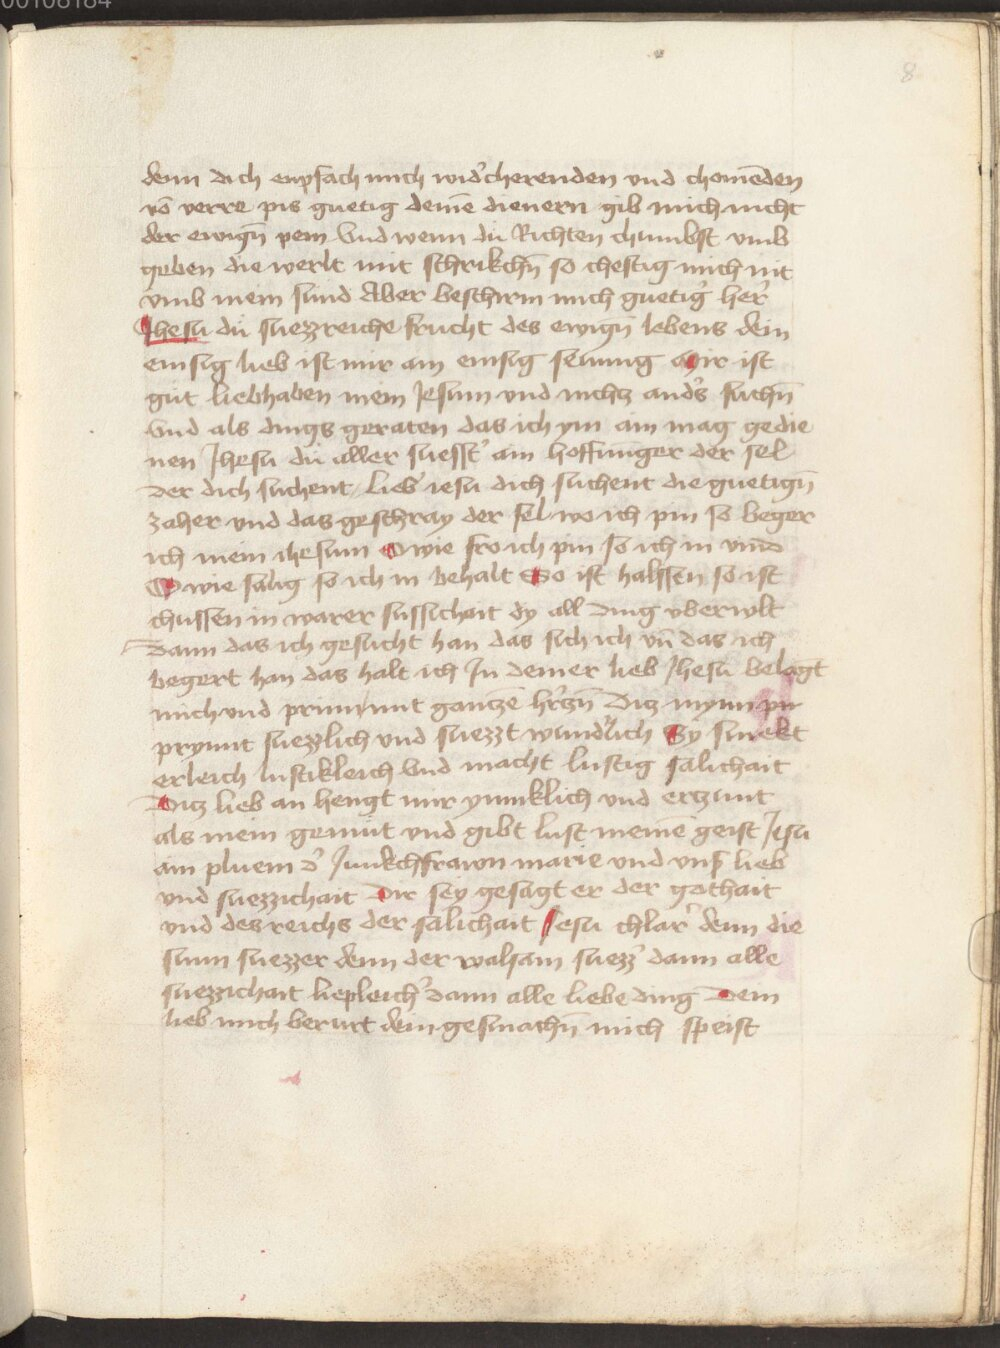 00108184
8
denn dich enpfach mich wid'cherenden vnd chomēden
vō verre pis guetig deinē dienern gib mich nicht
der ewigñ pein Vnd wenn du Richten chumbst vmb
geben die werlt mit schrikchñ so chestig mich nit
vmb mein sund Aber beschirm mich guetig' her'
Jhesu du suezzreiche frucht des ewigñ lebens dein
einsig lieb ist mir ain einsig senung Mir ist
gut liebhaben mein Jesum vnd nichz and's suchñ
Vnd als dings geraten das ich ym ain mag gedie
nen Jhesu du aller suesst' ain hoffnunger der sel
Der dich suchent / lieb' iesu dich suchent die guetigñ
zaher vnd das geschray der sel wo ich pin so beger
ich mein ihesum O wie fro ich pin so ich in vind
O wie salig so ich in behalt So ist halssen so ist
chussen in warer sussichait dy all ding vberwlt
Dann das ich gesucht han das sich ich vñ das ich
begert han das halt ich In deiner lieb Jhesu belagt
mich vnd prinn mit gantzē hr'tzñ Ditz mynn pin
prynnt suezzlich vnd suezzt wund'lich Sy smekt
erleich lustikleich Vnd macht lustig salichait
Ditz lieb an hengt mir ynniklich vnd ertzunt
als mein gemut vnd gibt lust meinē geist Jesu
ain pluem d' Junkchfrawn marie vnd vns' lieb
vnd suezzichait Dir sey gesagt er der gothait
vnd des reichs der salichait Jesu chlar' denn die
sunn suezzer denn der walsam suezz' dann alle
suezzichait liepleich' dann alle liebe ding Dein
lieb mich berurt dein gesmachñ mich speist